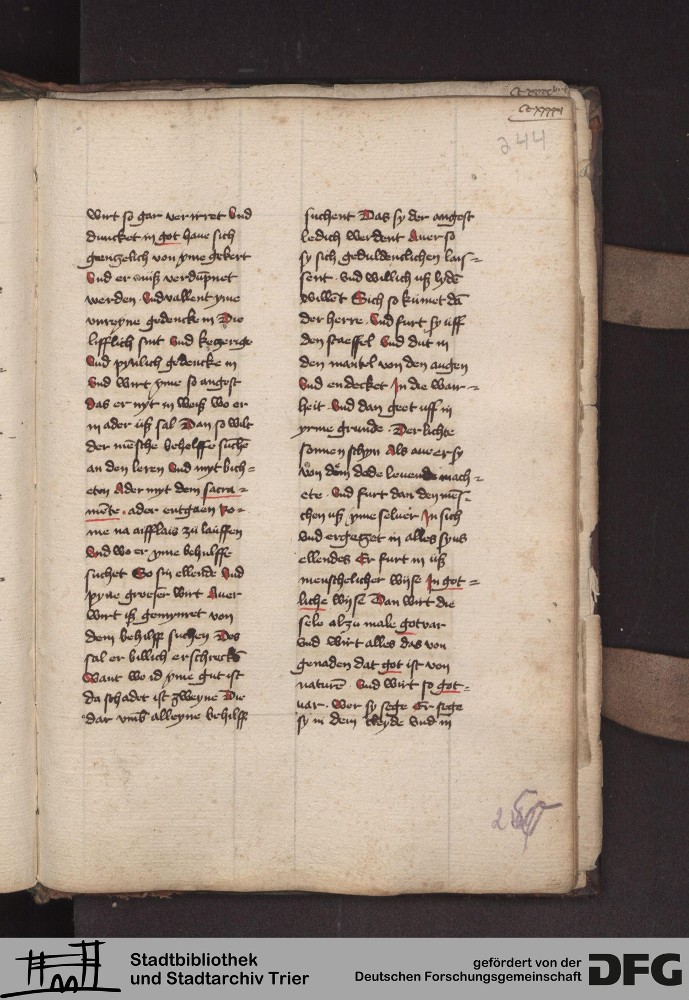 244
wirt so gar verirret Vnd
duncket in got haue sich
gentzelich von yme gekert
Vnd er muiß verdupnet
werden Vnd vallent yme
vnreyne gedencke in Die
lifflich sint Vnd ketzerige
Vnd pynlich gedencke in
Vnd wirt yme so angest
Das er nyt in weiß wo er
in ader uß sal Dan so wilt
der mēsche beholffe suchē
an den leren Vnd myt bich=
ten Ader myt dem sacra=
mēte ader entgaen Ro=
me na aifflais zů lauffen
Vnd wo er yme behulffe
suchet So sin ellende Vnd
pyne groeser wirt Auer
wirt iß genymet von
dem behilff suchen Des
sal er billich erschreckē
Want wo id yme gut ist
da schadet ist zweyne Die
dar vmb alleyne behilff
suchent Das sy der angest
ledich werdent Auer so
sy sich geduldenclichen lais=
sent Vnd willich uß lydē
willēt Sich so kūmet dā
der herre Vnd furt sy uff
den staeffel Vnd dut in
den mantel von den augen
Vnd endecket In die war=
heit Vnd dan geet uff in
yrme grunde Der lichte
sonnen schyn Als auer er sy
von dem dode leuende mach=
ete Vnd furt dan den mēs=
chen uß yme seluer In sich
vnd ergetzet in alles syns
ellendes Er furt in uß
menschelicher wijse In got=
liche wijse Dan wirt die
sele alzu male gotvar
vnd wirt alles das von
genaden dat got ist von
naturē Vnd wirt so got=
uar Wer sy sege Er sege
sy in dem cleyde Vnd in
Stadtbibliothek
und Stadtarchiv Trier
gefördert von der
Deutschen Forschungsgemeinschaft
DFG